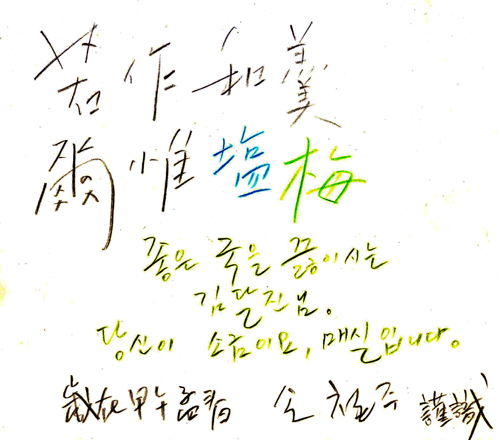 若作和羹
爾惟塩梅
좋은 국을 끓이시는
김달진님.
당신이 소금이요, 매실입니다.
歲在甲午孟春 손철주 謹識